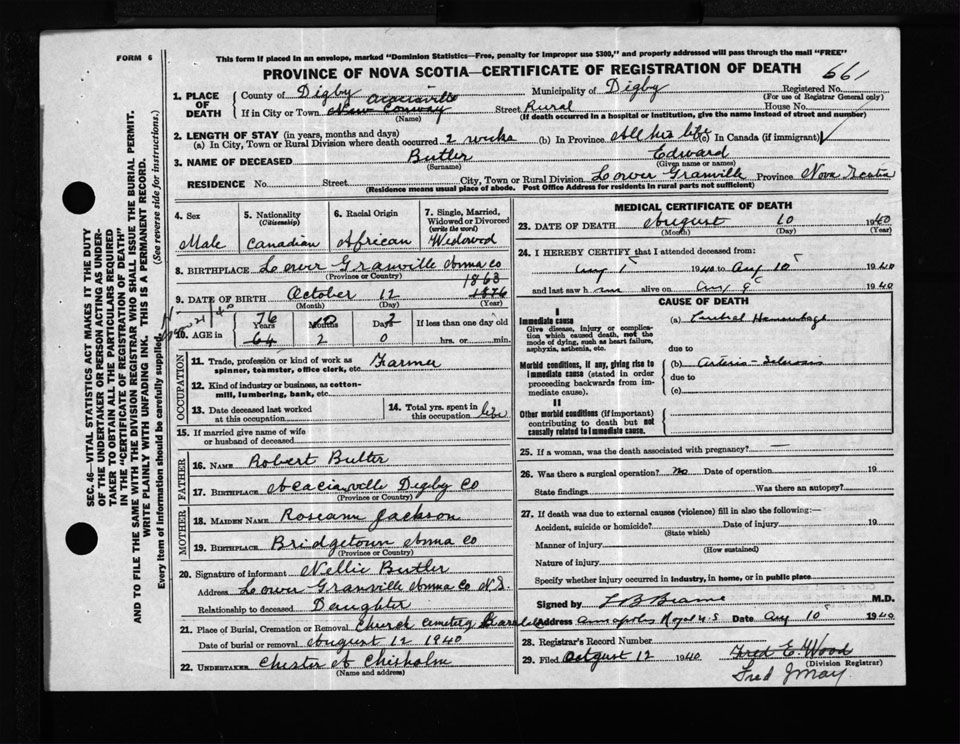 FORM 6
This form if placed in an envelope, marked "Dominion Statistics—Free, penalty for improper use $300," and properly addressed will pass through the mail "FREE"
PROVINCE OF NOVA SCOTIA—CERTIFICATE OF REGISTRATION OF DEATH 661
1. PLACE OF DEATH County of Digby Municipality of Digby Registered No.
(For use of Registrar General only)
Acaciaville
If in City or Town New Conway Street Rural House No.
(Name) (If death occurred in a hospital or institution, give the name instead of street and number)
2. LENGTH OF STAY (in years, months and days)
(a) In City, Town or Rural Division where death occurred 2 weeks (b) In Province All his life (c) In Canada (if immigrant)
3. NAME OF DECEASED Butler Edward
(Surname) (Given name or names)
RESIDENCE No. Street City, Town or Rural Division Lower Granville Province Nova Scotia
(Residence means usual place of abode. Post Office Address for residents in rural parts not sufficient)
4. Sex Male
5. Nationality (Citizenship) Canadian
6. Racial Origin African
7. Single, Married, Widowed or Divorced (write the word) Widowed
8. BIRTHPLACE Lower Granville Anna Co
(Province or Country)
1863
9. DATE OF BIRTH October 12 1876
(Month) (Day) (Year)
10. AGE in 76 Years 10 Months 2 Days If less than one day old
64 2 0 hrs. or min.
OCCUPATION
11. Trade, profession or kind of work as spinner, teamster, office clerk, etc. Farmer
12. Kind of industry or business, as cotton-mill, lumbering, bank, etc.
13. Date deceased last worked at this occupation
14. Total yrs. spent in this occupation life
15. If married give name of wife or husband of deceased
FATHER
16. NAME Robert Butler
17. BIRTHPLACE Acaciaville Digby Co
(Province or Country)
MOTHER
18. MAIDEN NAME Roseann Jackson
19. BIRTHPLACE Bridgetown Anna Co
(Province or Country)
20. Signature of informant Nellie Butler
Address Lower Granville Anna Co N.S.
Relationship to deceased Daughter
21. Place of Burial, Cremation or Removal Church Cemetery
Date of burial or removal August 12 1940
22. UNDERTAKER Chester A Chisholm
(Name and address)
MEDICAL CERTIFICATE OF DEATH
23. DATE OF DEATH August 10 1940
(Month) (Day) (Year)
24. I HEREBY CERTIFY that I attended deceased from:
Aug 1 1940 to Aug 10 1940
and last saw him alive on Aug 9 1940
CAUSE OF DEATH
I
Immediate cause
Give disease, injury or complication which caused death, not the mode of dying, such as heart failure, asphyxia, asthenia, etc.
(a) Cerebral Hemorrhage
due to
Morbid conditions, if any, giving rise to immediate cause (stated in order proceeding backwards from immediate cause).
(b) Arterio-Sclerosis
due to
(c)
II
Other morbid conditions (if important) contributing to death but not causally related to immediate cause.
25. If a woman, was the death associated with pregnancy? —
26. Was there a surgical operation? no Date of operation 19
State findings Was there an autopsy?
27. If death was due to external causes (violence) fill in also the following:—
Accident, suicide or homicide? Date of injury 19
(State which)
Manner of injury
(How sustained)
Nature of injury
Specify whether injury occurred in industry, in home, or in public place
Signed by M.D.
Address Annapolis Royal N.S Date Aug 10 1940
28. Registrar's Record Number
29. Filed August 12 1940 Fred E. Wood
(Division Registrar)
Fred J May
SEC. 46—VITAL STATISTICS ACT MAKES IT THE DUTY
OF THE UNDERTAKER OR PERSON ACTING AS UNDER-
TAKER TO OBTAIN ALL THE PARTICULARS REQUIRED
IN THE "CERTIFICATE OF REGISTRATION OF DEATH"
AND TO FILE THE SAME WITH THE DIVISION REGISTRAR WHO SHALL ISSUE THE BURIAL PERMIT.
WRITE PLAINLY WITH UNFADING INK. THIS IS A PERMANENT RECORD.
Every item of information should be carefully supplied. (See reverse side for instructions.)